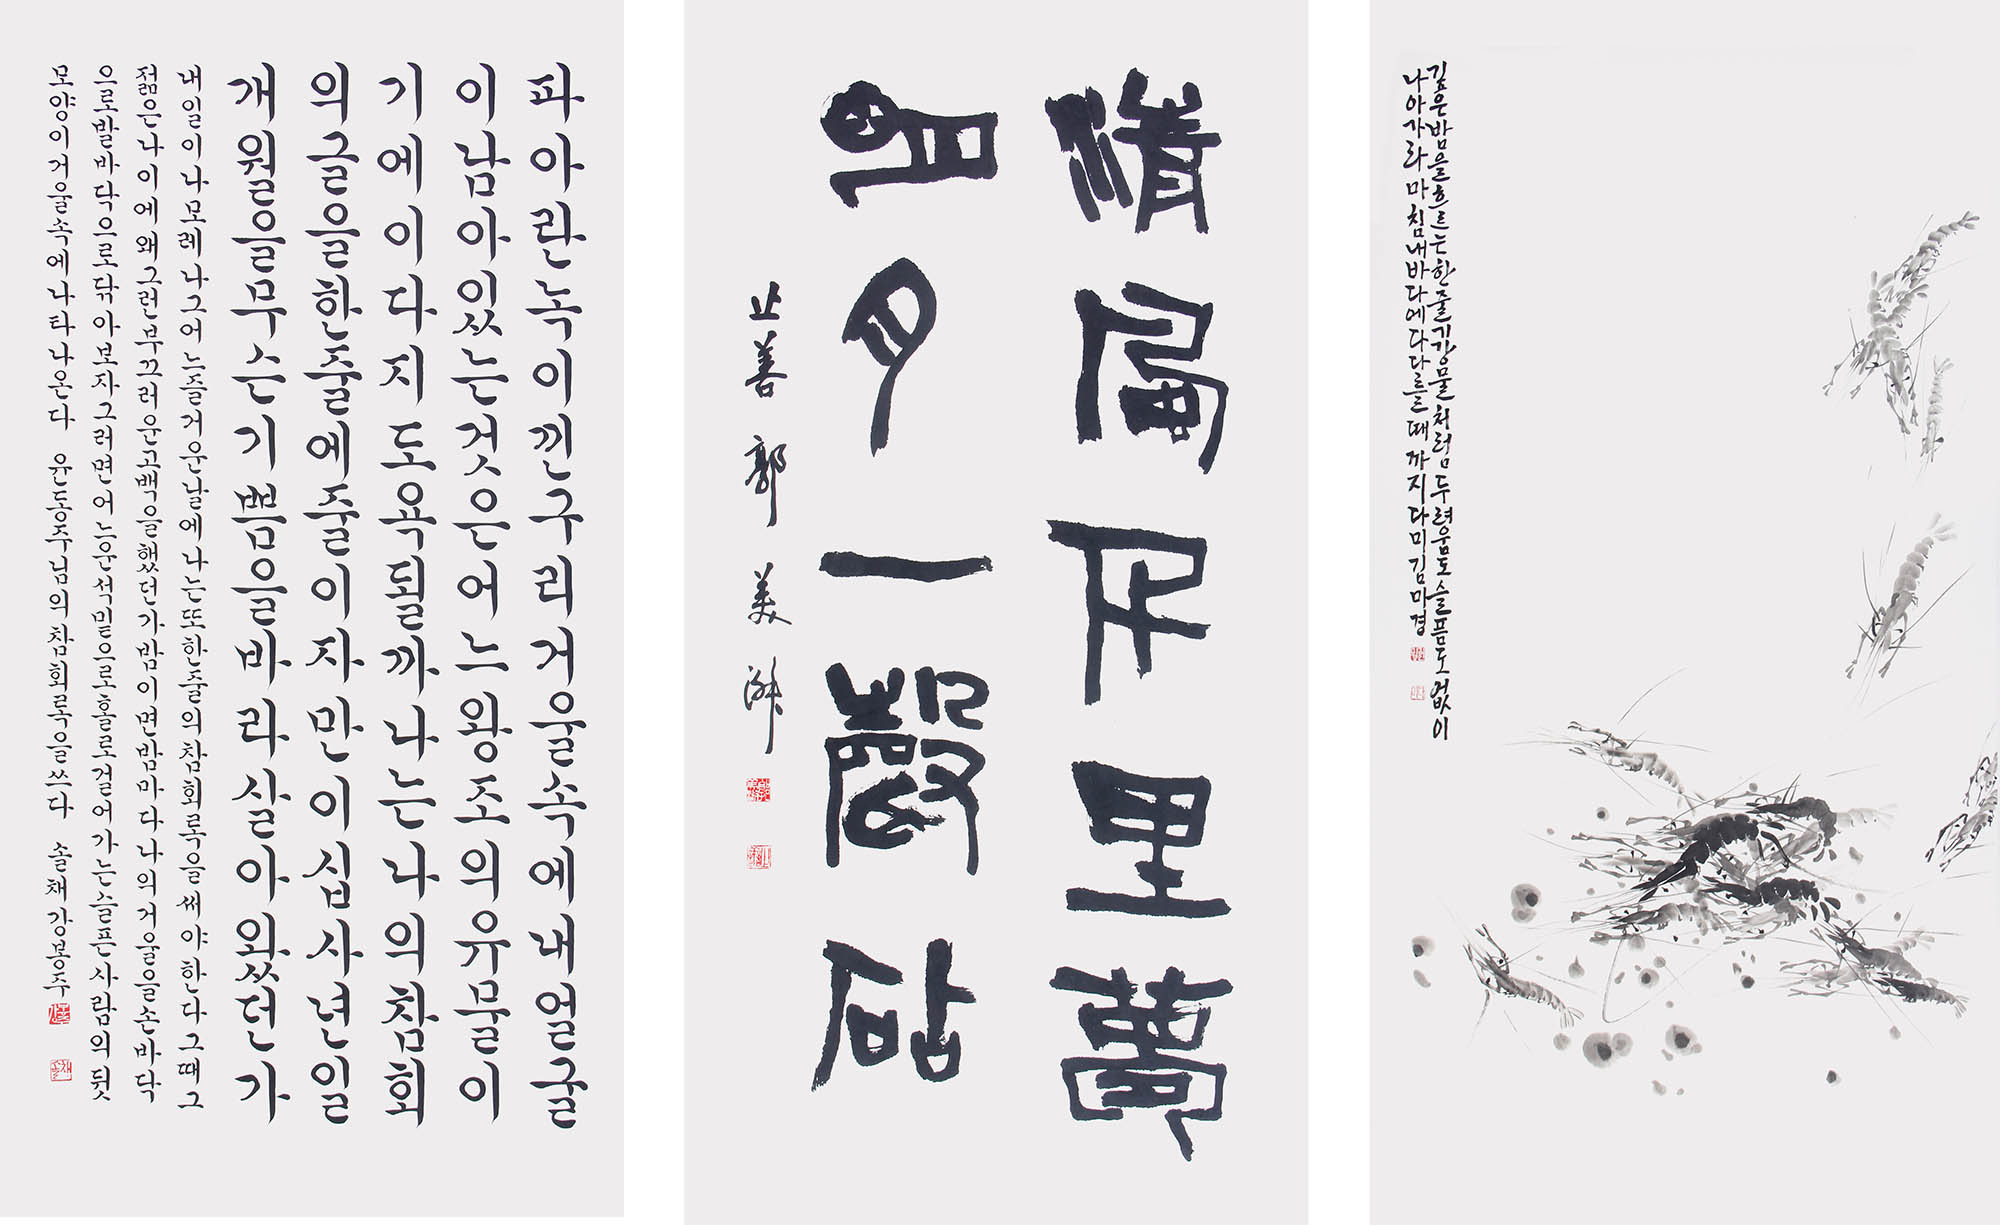 파아란녹이낀구리거울속에내얼굴
이남아있는것은어느왕조의유물이
기에이다지도욕될까나는나의참회
의글을한줄에줄이자만이십사년일
개월을무슨기쁨을바라살아왔던가
내일이나모레나그어느즐거운날에나는또한줄의참회록을써야한다그때그
젊은나이에왜그런부끄러운고백을했던가밤이면밤마다나의거울을손바닥
으로발바닥으로닦아보자그러면어느운석밑으로홀로걸어가는슬픈사람의뒷
모양이거울속에나타나온다 윤동주님의참회록을쓰다 솔채강봉주
淸偏里
明月一聲砧
止善 郭美淑
깊은밤을흐르는한줄기강물처럼두려움도슬픔도없이
나아가라마침내바다에다다를때까지다미김마경